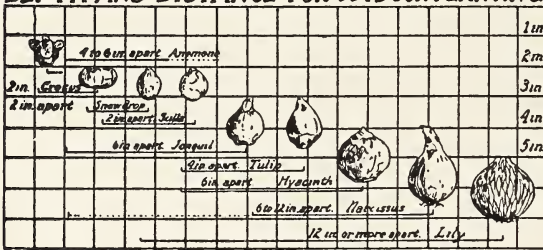 1in
4 to 6 in. apart Anemone
2in
2in. Crocus
3in
2 in. apart
Snowdrop
2in. apart Scilla
4in
6in apart Jonquil
5in
4in apart. Tulip
6in apart Hyacinth
6 to 12 in. apart. Narcissus
12 in or more apart. Lily